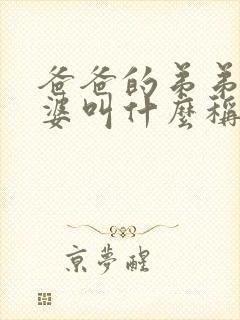 爸爸的弟弟
婆叫什麼稱
京夢醒